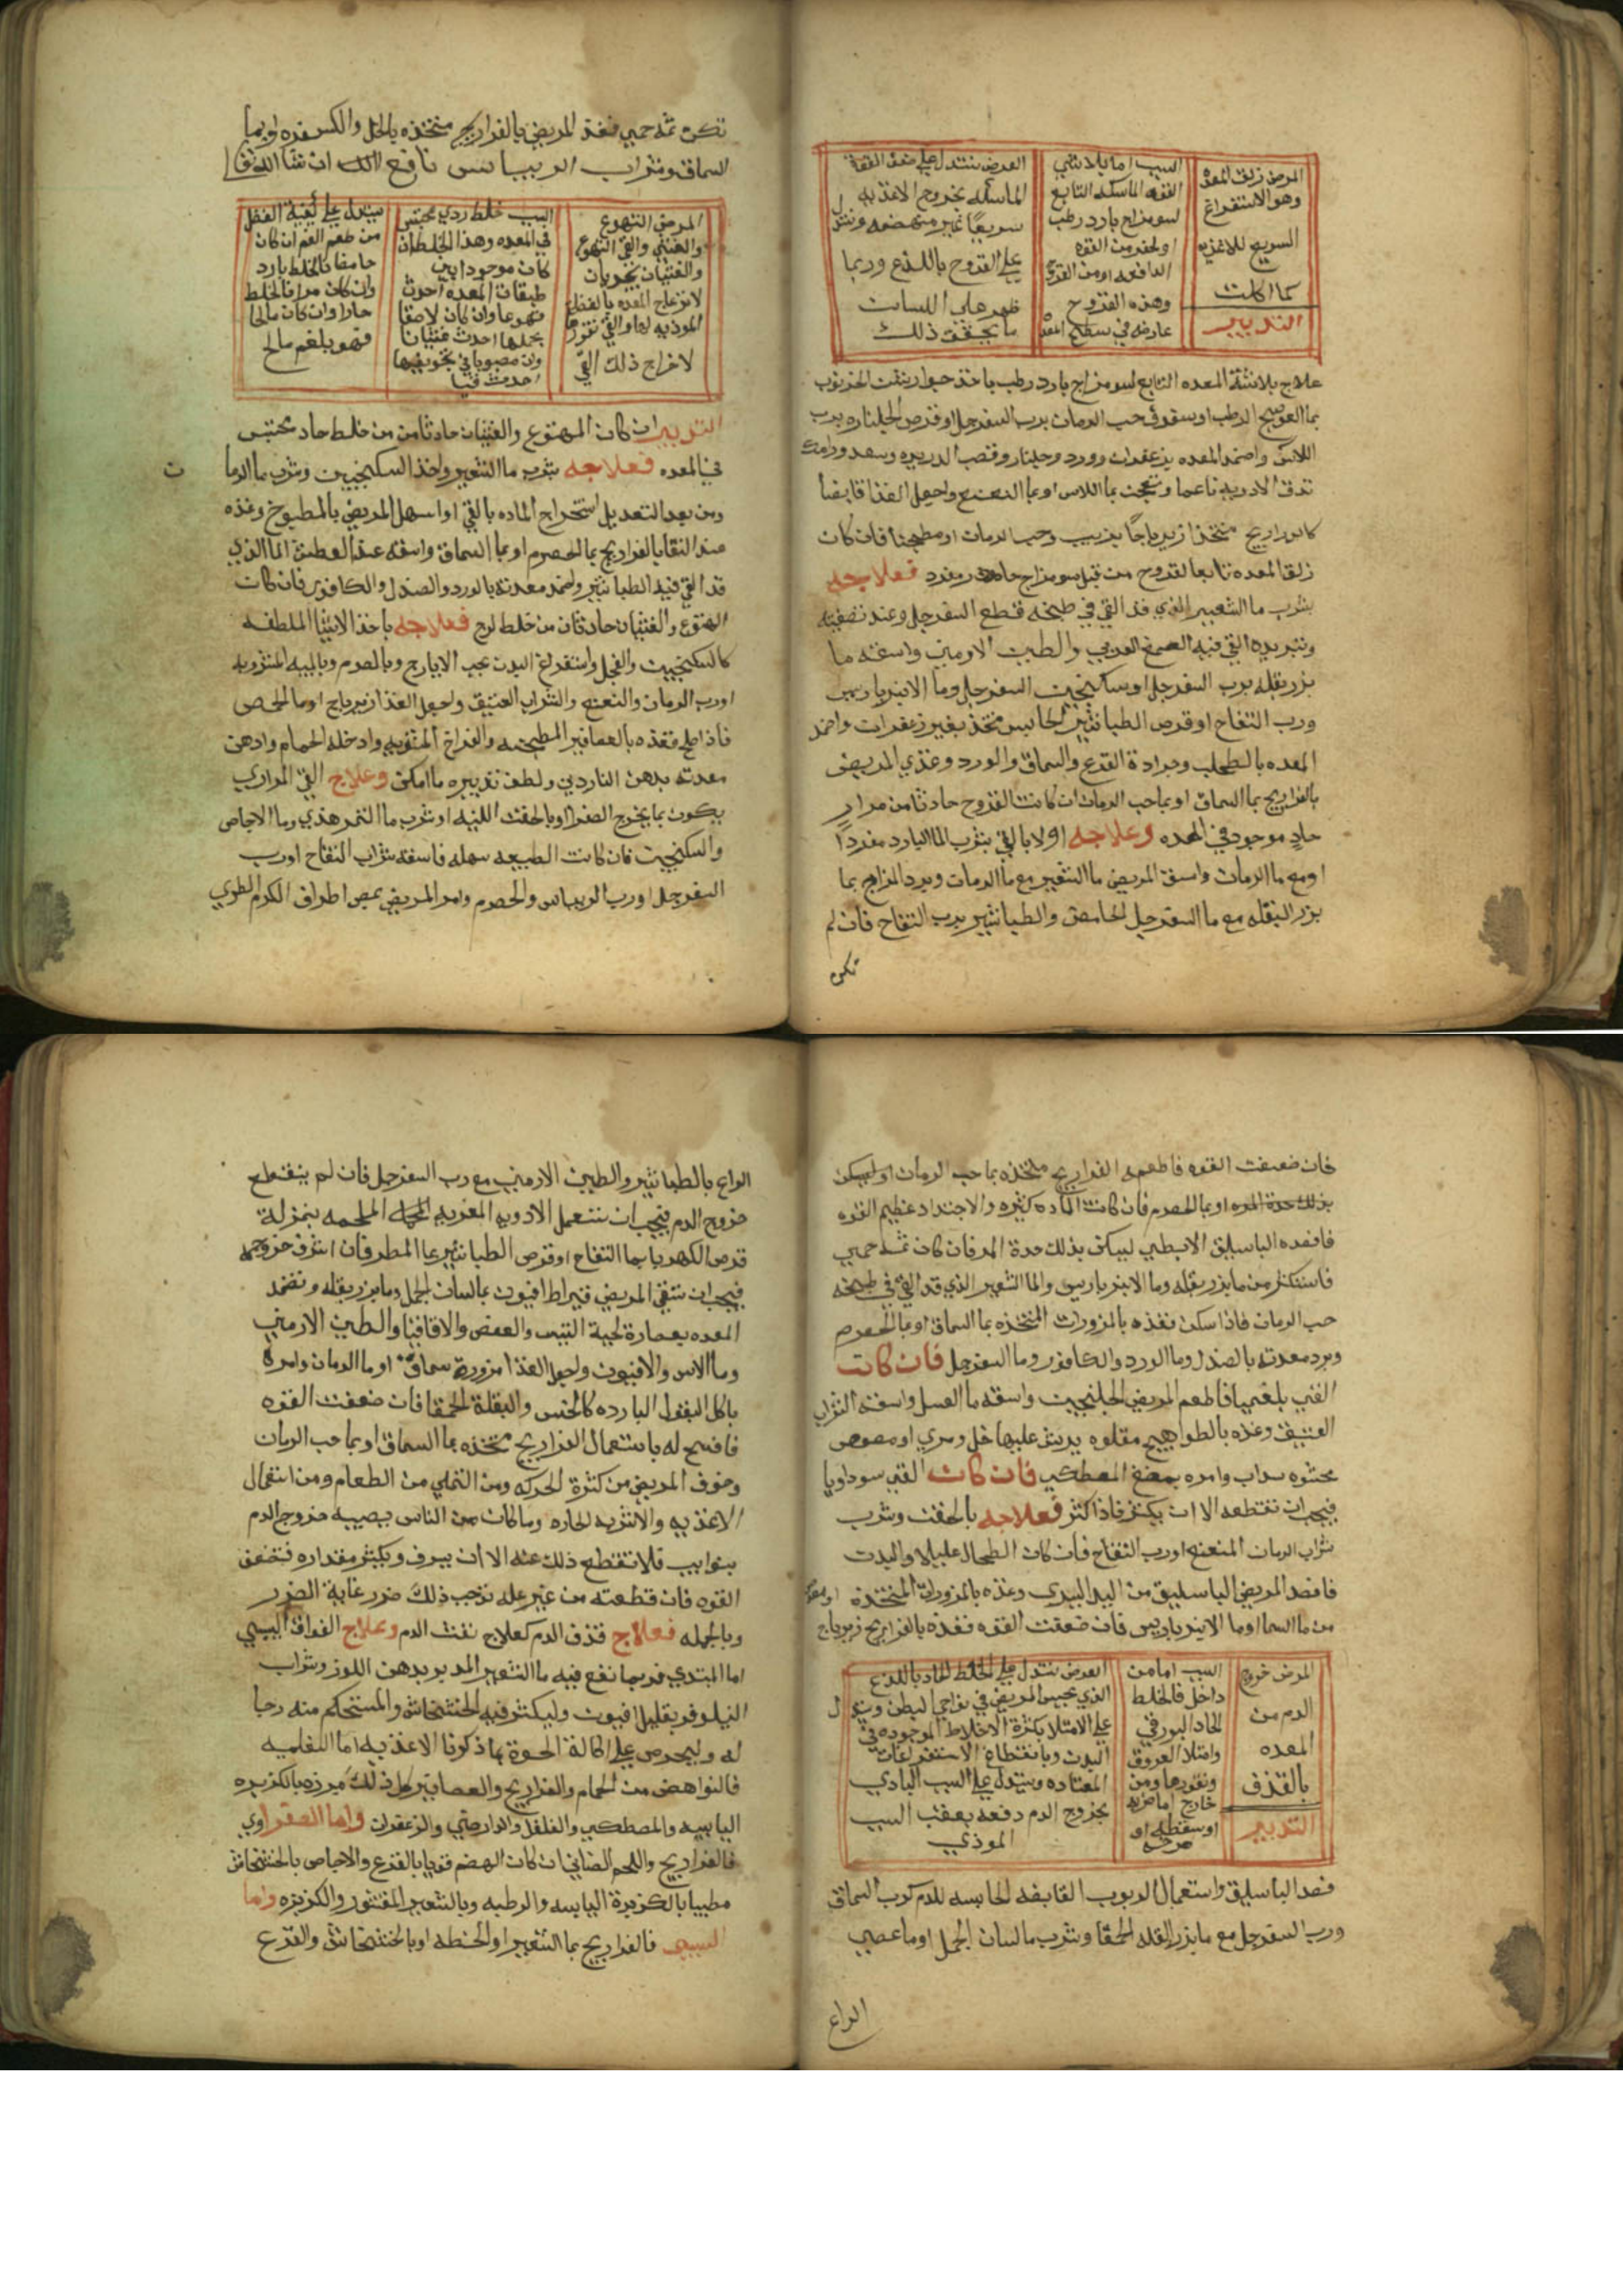 المرض زلق المعده
وهو الاستفراغ
السريع للاغذيه
كما اكلت
التدبير
السبب اما بلاشي
القوه الماسكه التابع
لسو مزاج بارد رطب
او لحقر من القوه
الدافعه او من القروح
وهذه القروح
عارضه في سطح المعده
العرض يستدل علي ضعف القوة
الماسكه بخروج الاغذيه
سريعًا غير منهضمه ويستدل
علي القروح باللذع وربما
ظهر على اللسان
ما يحقق ذلك
علاج بلاشة المعده التابع لسو مزاج بارد رطب ياخذ جوارشن الخرنوب
بما العوسج الرطب او سفوف حب الرمان برب السفرجل او قرص الجلنار برب
الاس واضمد المعده بزعفران وورد وجلنار وقصب الدريره وسعد ورامك
تدق الادويه ناعما وتعجن بما الاس او بما النعنع واجعل الغذا قابضا
كالدراريج متخذا زيرباجًا بزبيب وحب الرمان او مطجنا فان كان
زلق المعده تابعا لقروح من قبل سو مزاج حار مفرد فعلاجه
بشرب ما الشعير الذي قد القي في طبخه قطع السفرجل وعند تصفيته
وتبريده القي فيه الصمغ العربي والطين الارمني واسقه ما
بزر بقله برب السفرجل او سكنجبين السفرجل وما الانبرباريس
ورب التفاح او قرص الطباشير الحابس متخذ بغير زعفران واضمد
المعده بالطحلب وجرادة القرع والسماق والورد وغذي المريض
بالفراريج بما السماق او بما حب الرمان ان كانت القروح حادثا من مرار
حاد موجود في المعده وعلاجه اولا بالقي بشرب الما البارد مفردًا
او مع ما الرمان واسق المريض ما الشعير مع ما الرمان وبرد المزاج بما
بزر البقله مع ما السفرجل الحامض والطباشير برب التفاح فان لم
تكن
تكن ثمه حمي فغذ المريض بالفراريج متخذه بالخل والكسفره او بما
السماق وشراب الريباس نافع لذلك ان شا الله تعا
المرض التهوع
والغثي والقي التهوع
والغثيان يحويان
لانزعاج المعده بالفضل
الموذيه لها والقي تقورها
لاخراج ذلك القي
السبب خلط ردي محتبس
في المعده وهذا الخلط ان
كان موجودا بين
طبقات المعده احدث
تهوعا وان كان لاصقا
بحملها احدث غثيانا
وان مصبوبا في تجويفها
احدث قيا
يستدل علي كيفية الفضل
من طعم الفم ان كان
حامضا فالخلط بارد
وان كان مرا فالخلط
حارا وان كان مالحا
فهو بلغم مالح
التدبير ان كان المهتوع والغثيان حادثا من من خلط حاد محتبس
في المعده فعلاجه بشرب ما الشعير واخذ السكنجبين وشرب ما الرمان
ومن بعد التعديل استخراج الماده بالقي او اسهل المريض بالمطبوخ وغذه
عند النقا بالفراريج بما الحصرم او بما السماق واسقه عند العطش الما الذي
قد القي فيه الطباشير واضمد معدته بالورد والصندل والكافور فان كان
التهوع والغثيان حادثان من خلط لزج فعلاجه باخذ الاشيا الملطفه
كالسكنجبين والفجل واستفراغ البدن بحب الايارج وبالصوم وبالميبه المشروبه
اورب الرمان والنعنع والشراب العتيق واجعل الغذا زيرباج او ما الحمص
فاذا صلح فغذه بالعصافير المطجنه والفراخ المشويه وادخله الحمام وادهن
معدته بدهن الناردين ولطف تدبيره ما امكن وعلاج القي المراري
يكون بما يخرج الصفرا او بالحقن اللينه او شرب ما التمر هندي وما الاجاص
والسكنجبين فان كانت الطبيعه سهله فاسقه شراب التفاح اورب
السفرجل اورب الريباس والحصرم وامر المريض بمص اطراف الكرم الطري
فان ضعفت القوه فاطعمه الفراريج متخذه بما حب الرمان او ليسكن
بذلك حدة المره او بما الحصرم فان كانت الماده كثيره والاجتداد عظيم القوه
فافصده الباسليق الابطي ليسكن بذلك حدة المر فان كان ثمه حمي
فاستكثر من ما بزر بقله وما الانبرباريس والما الشعير الذي قد القي في طبخه
حب الرمان فاذا سكن فغذه بالمزورات المتخذه بما السماق او بما الحصرم
وبرد معدته بالصندل وما الورد والكافور وما السفرجل فان كان
القي بلغميا فاطعم المريض الجلنجبين واسقه ما العسل واسقه الشراب
العتيق وغذه بالطواهيج مقلوه يرش عليها خل ومري او مصوص
محشوه سداب وامره بمضغ المصطكي فان كان القي سوداويا
فيجب ان تقطعه الا ان يكثر فاذا كثر فعلاجه بالحقن وشرب
شراب الرمان المنعنع اورب التفاح فان كان الطحال عليلا والبدن
فافصد المريض الباسليق من اليد اليسري وغذه بالمزورات المتخذه
من ما السماق او ما الانبرباريس فان ضعفت القوه فغذه بالفراريج زيرباج
المرض خروج
الدم من
المعده
بالقذف
التدبير
السبب اما من
داخل فالخلط
الحاد البورقي
وامتلا العروق
وتقورها ومن
خارج اما ضربه
او سقطه او
صرخه
العرض يستدل علي الخلط الحاد باللذع
الذي يحبس المريض في نواحي البطن ويستدل
علي الامتلا بكثرة الاخلاط الموجوده في
البدن وبانقطاع الاستفراغات
المعتاده ويستدل علي السبب البادي
بخروج الدم دفعه بعقب السبب
الموذي
فصد الباسليق واستعمال الربوب القابضه الحابسه للدم كرب السماق
ورب السفرجل مع ما بزر البقله الحمقا وشرب ما لسان الحمل او ما عصي
الراع
الراع بالطباشير والطين الارمني مع رب السفرجل فان لم ينقطع
خروج الدم فيجب ان تستعمل الادويه المغريه الملحمه بمنزلة
قرص الكهربا بما التفاح او قرص الطباشير بما المطر فان اسرف خروجه
فيجب ان تسقي المريض قيراط افيون بما لسان الحمل وما بزر بقله وتضمد
المعده بعصارة لحية التيس والعفص والاقاقيا والطين الارمني
وما الاس والافيون واجعل الغذا مزورة سماق او ما الرمان وامره
باكل البقول البارده كالخس والبقلة الحمقا فان ضعفت القوه
فافسح له باستعمال الفراريج متخذه بما السماق او بما حب الرمان
وخوف المريض من كثرة الحركه ومن التملي من الطعام ومن استعمال
الاغذيه والاشربه الحاره وما كان من الناس يصيبه خروج الدم
بنوايب فلا تقطع ذلك عنه الا ان يسرف ويكثر مقداره فتضعف
القوه فان قطعته من غير عله توجب ذلك ضرر غاية الضرر
وبالجمله فعلاج قذف الدم كعلاج نفث الدم وعلاج الفواق اليبسي
اما المبتدي فربما نفع فيه ما الشعير المدبر بدهن اللوز وشراب
النيلوفر بقليل افيون وليكثر فيه الخشخاش والمستحكم منه رجا
له وليحرص علي اكالة الحسوة بما ذكرنا الاغذيه اما البلغميه
فالنواهض من الحمام والفراريج والعصافير كل ذلك مبرزه بالكزبره
اليابسه والمصطكي والفلفل والدارصيني والزعفران واما الصفراوي
فالفراريج واللحم الضاني ان كان الهضم قويا بالقرع والاجاص بالخشخاش
مطيبا بالكزبرة اليابسه والرطبه وبالشعير المقشور والكزبزه واما
اليبسي فالفراريج بما الشعير او الحنطه او بالخشخاش والقرع